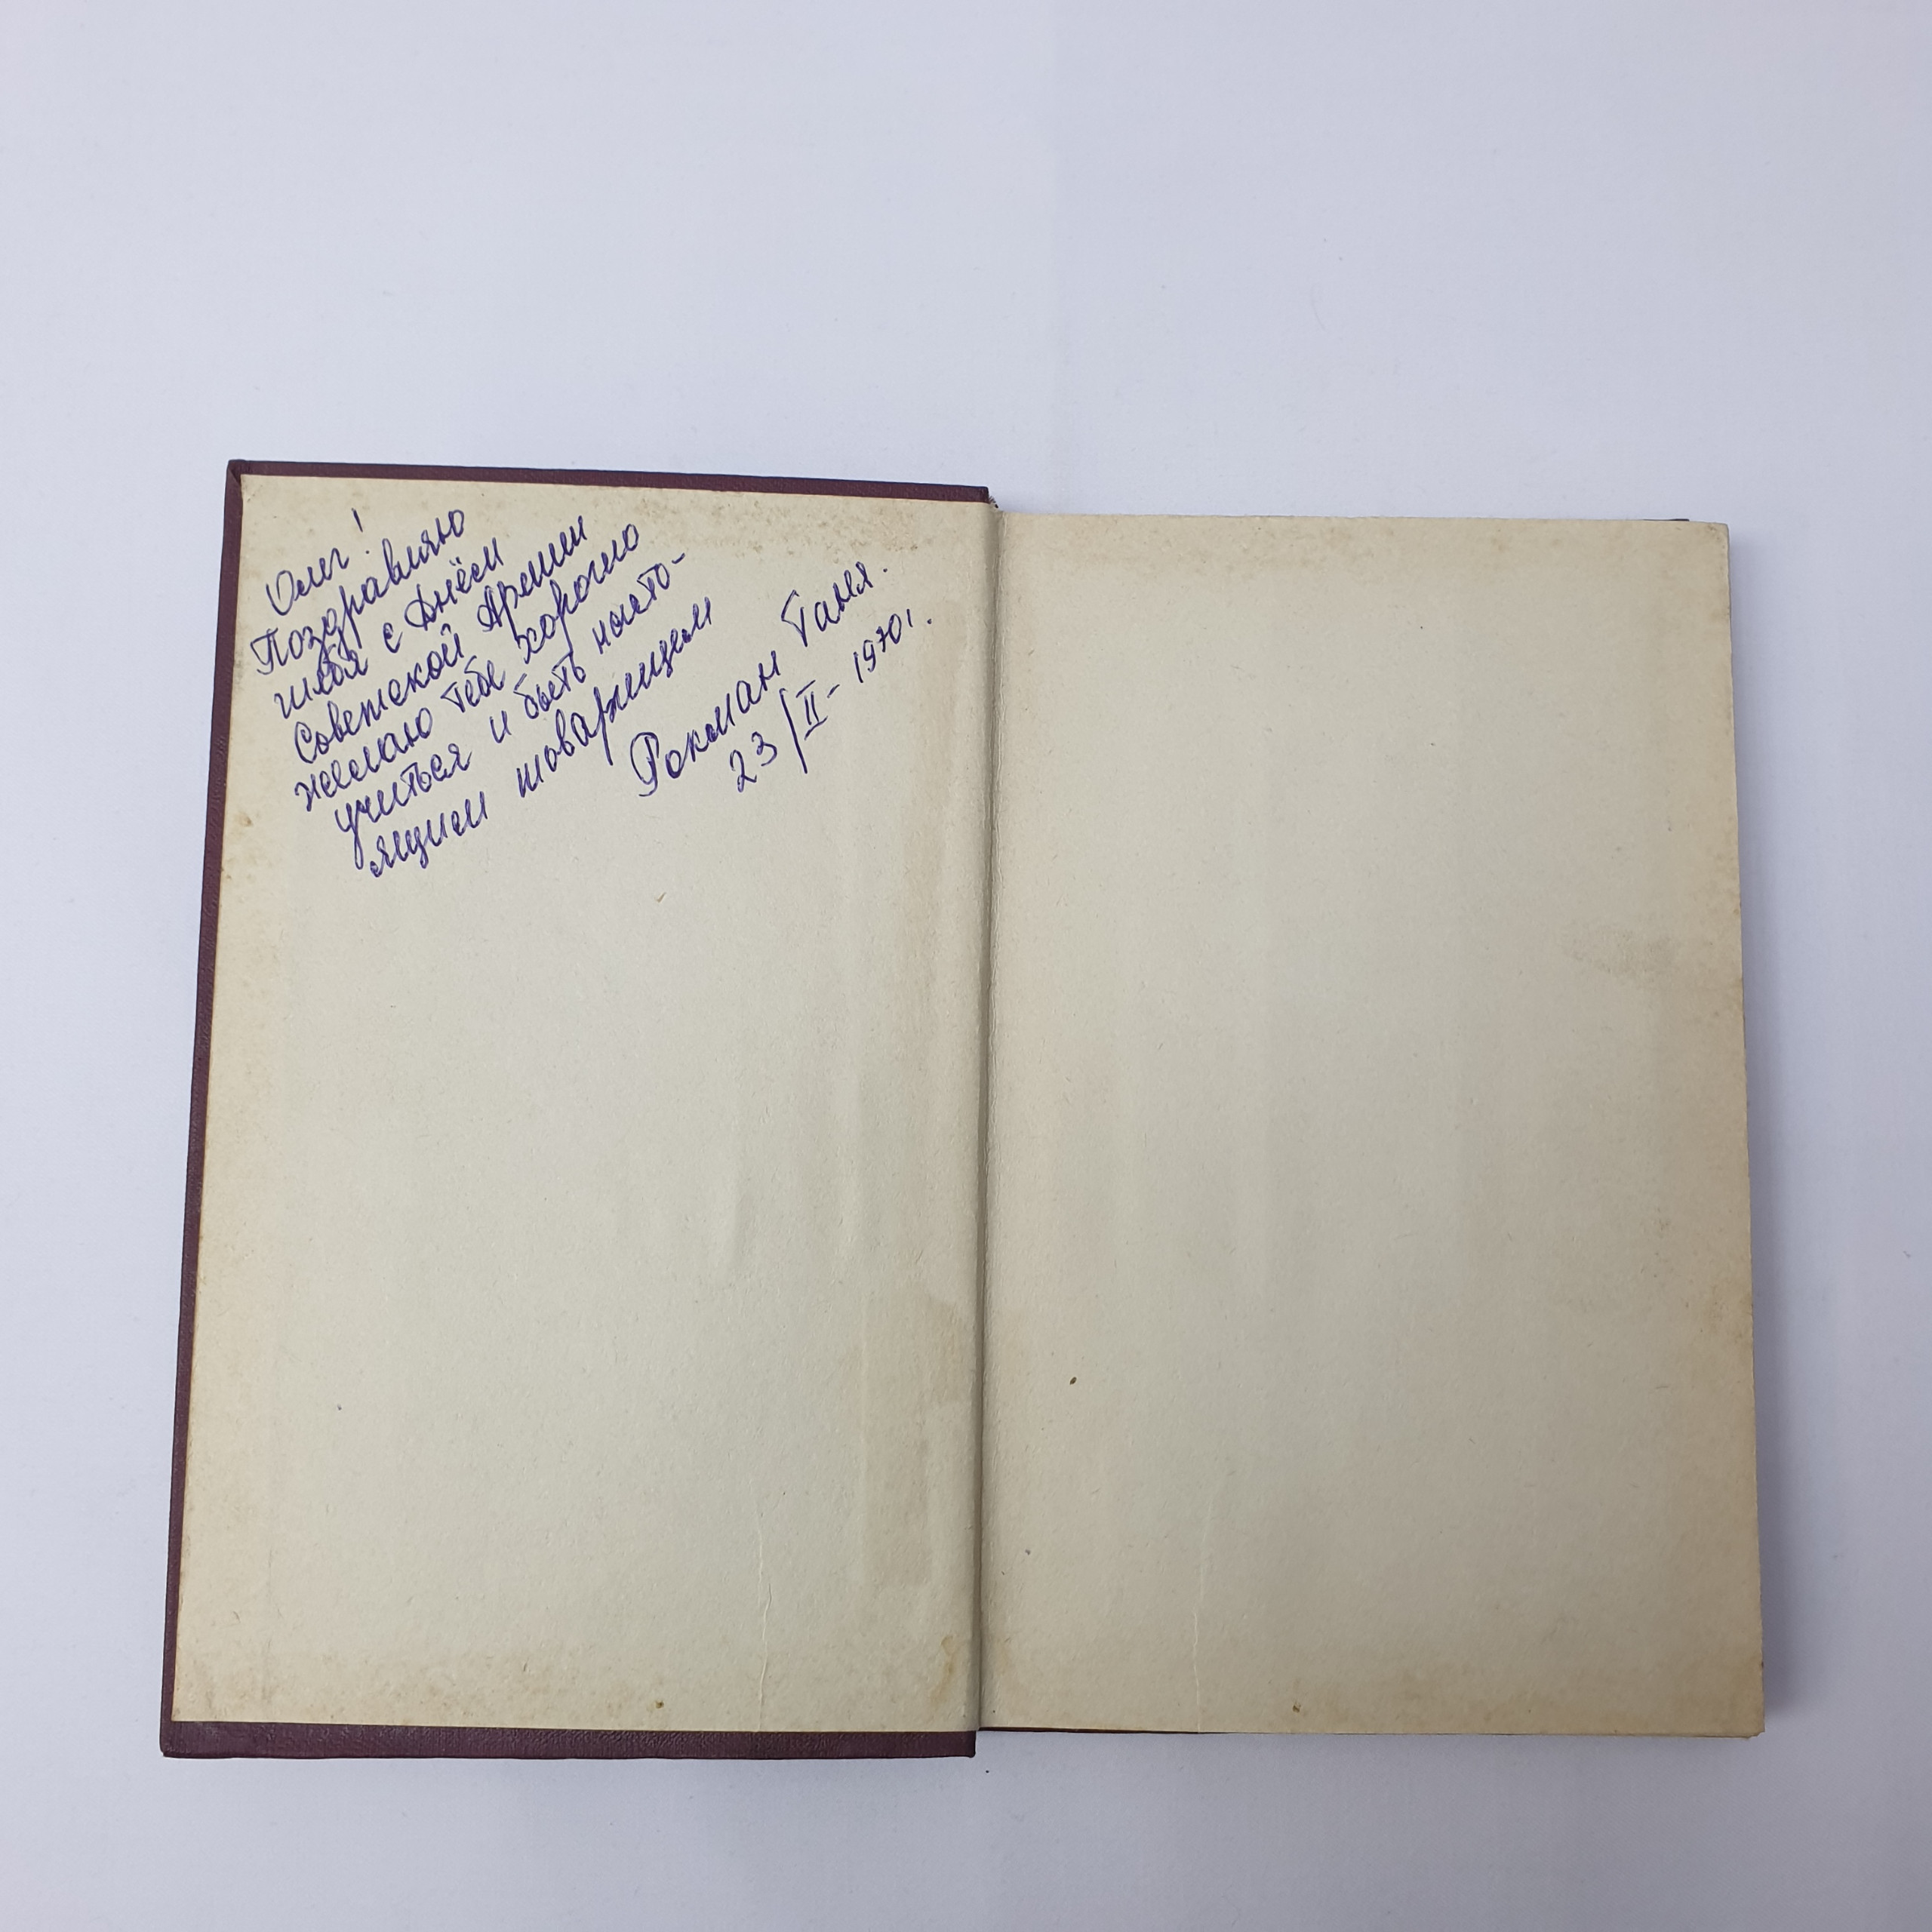 Олег!
Поздравляю
тебя с Днём
Советской Армии
желаю тебе хорошо
учиться и быть насто-
ящим товарищем
Рокман Таня.
23/II-1970г.